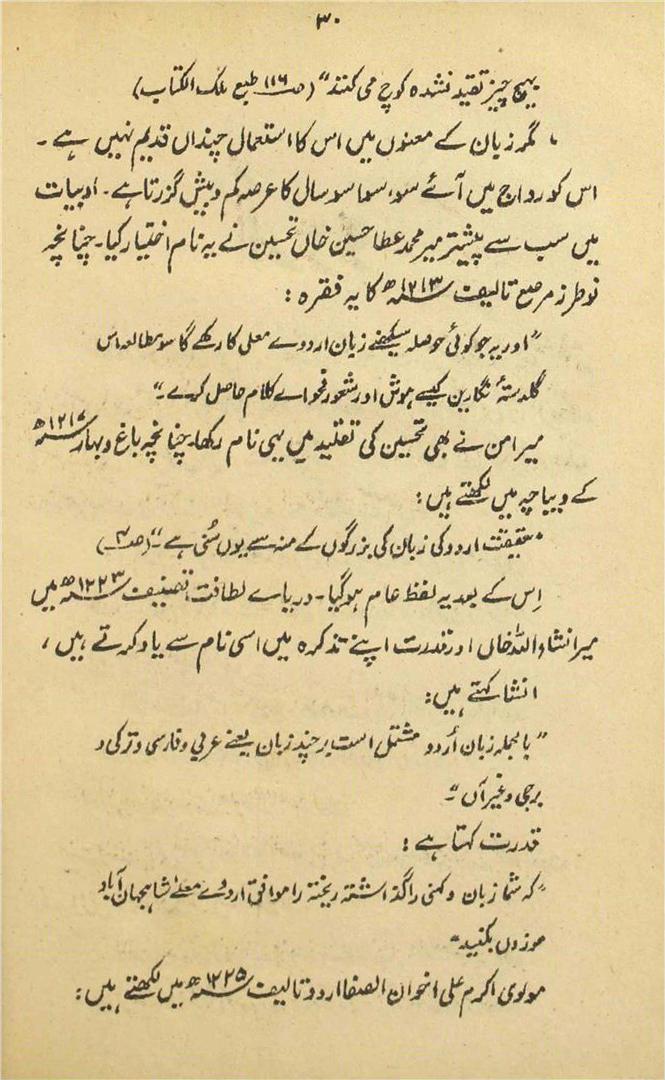 ۳۰
بہیچ چیز تقید نشدہ کوچ می کنند" (صـ۱۱۶ طبع ملک الکتاب)
مگر زبان کے معنوں میں اس کا استعمال چنداں قدیم نہیں ہے۔
اس کو رواج میں آئے سو، سوا سو سال کا عرصہ کم و بیش گزرتا ہے۔ ادبیات
میں سب سے پیشتر میر محمد عطا حسین خاں تحسین نے یہ نام اختیار کیا۔ چنانچہ
نو طرز مرصع تالیف ۱۲۱۳ھ کا یہ فقرہ :
"اور یہ جو کوئی حوصلہ سیکھنے زبان اردوے معلی کا رکھے گا سو بمطالعہ اس
گلدستۂ نگارین کیسے ہوش اور شعور فحواے کلام حاصل کرے۔"
میر امن نے بھی تحسین کی تقلید میں یہی نام رکھا۔ چنانچہ باغ و بہار ۱۲۱۷ھ
کے دیباچہ میں لکھتے ہیں :
"حقیقت اردو کی زبان کی بزرگوں کے منہ سے یوں سُنی ہے۔" (صـ۴)
اِس کے بعد یہ لفظ عام ہو گیا۔ دریاے لطافت تصنیف ۱۲۲۳ھ میں
میر انشاء اللہ خاں اور قدرت اپنے تذکرہ میں اسی نام سے یاد کرتے ہیں ،
انشا کہتے ہیں :
"بالجملہ زبان اُردو مشتمل است بر چند زبان یعنے عربی و فارسی و ترکی و
برجی و غیر آں"۔
قدرت کہتا ہے :
"کہ شما زبان دکنی را گذاشتہ ریختہ را موافق اردوے معلےٰ شاہجہان آباد
موزوں بکنید"
مولوی اکرم علی اخوان الصفا اردو تالیف ۱۲۲۵ھ میں لکھتے ہیں :